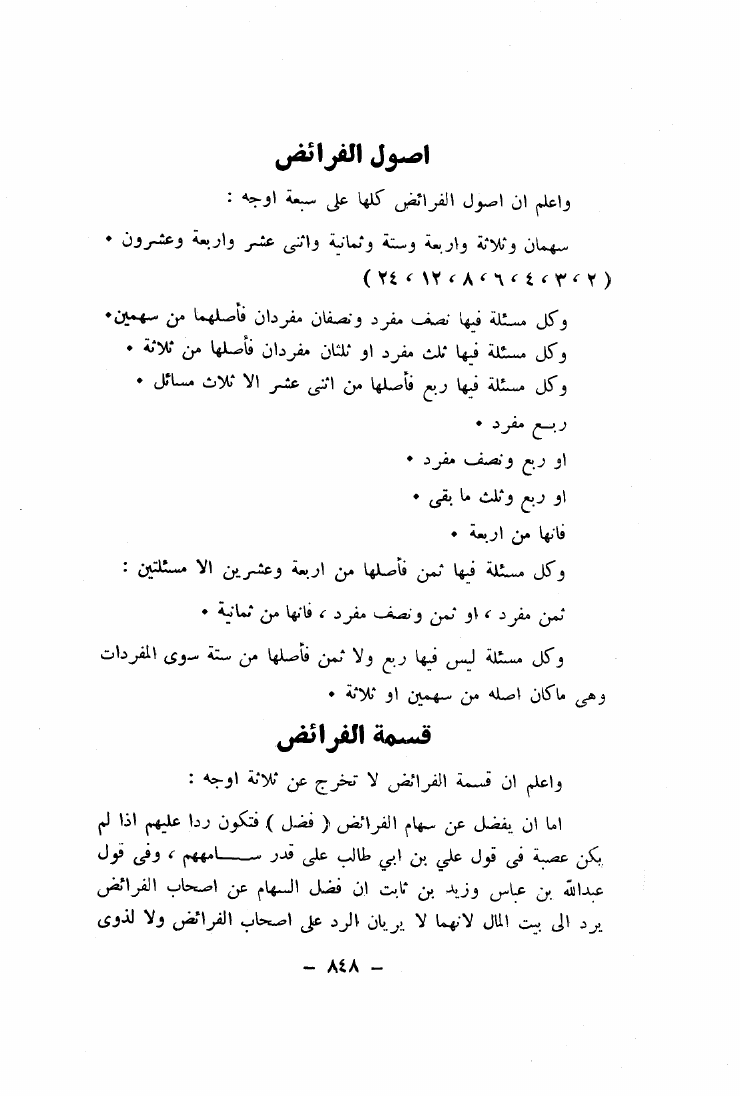 اصول الفرائض
واعلم ان اصول الفرائض كلها على سبعة اوجه :
سهمان وثلاثة واربعة وستة وثمانية واثنى عشر واربعة وعشرون •
( ٢ ، ٣ ، ٤ ، ٦ ، ٨ ، ١٢ ، ٢٤ )
وكل مسئلة فيها نصف مفرد ونصفان مفردان فأصلهما من سهمين •
وكل مسئلة فيها ثلث مفرد او ثلثان مفردان فأصلها من ثلاثة •
وكل مسئلة فيها ربع فأصلها من اثنى عشر الا ثلاث مسائل •
ربع مفرد •
او ربع ونصف مفرد •
او ربع وثلث ما بقى •
فانها من اربعة •
وكل مسئلة فيها ثمن فأصلها من اربعة وعشرين الا مسئلتين :
ثمن مفرد ، او ثمن ونصف مفرد ، فانها من ثمانية •
وكل مسئلة ليس فيها ربع ولا ثمن فأصلها من ستة سوى المفردات
وهى ماكان اصله من سهمين او ثلاثة •
قسمة الفرائض
واعلم ان قسمة الفرائض لا تخرج عن ثلاثة اوجه :
اما ان يفضل عن سهام الفرائض ( فضل ) فتكون ردا عليهم اذا لم
يكن عصبة فى قول علي بن ابي طالب على قدر سامههم ، وفى قول
عبدالله بن عباس وزيد بن ثابت ان فضل السهام عن اصحاب الفرائض
يرد الى بيت المال لانهما لا يريان الرد على اصحاب الفرائض ولا لذوى
– ٨٤٨ –